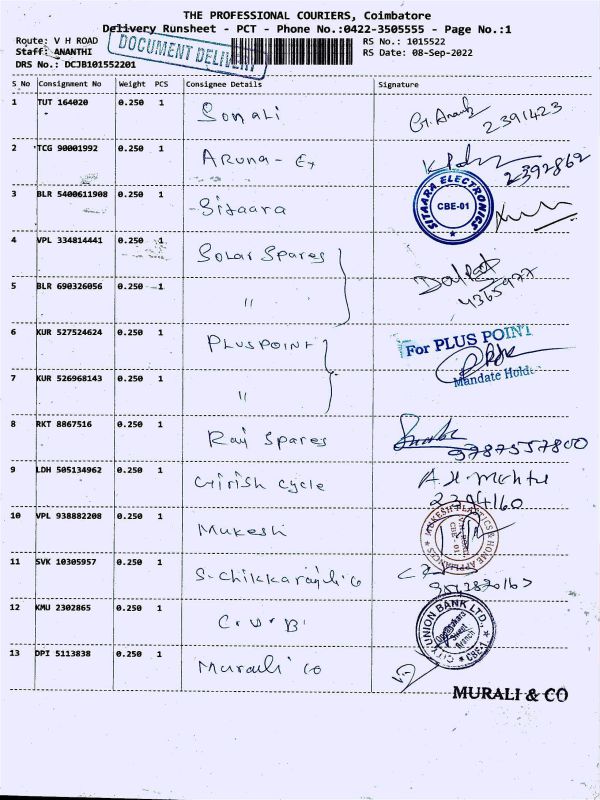 THE PROFESSIONAL COURIERS, Coimbatore
Delivery Runsheet - PCT - Phone No.:0422-3505555 - Page No.:1
Route: V H ROAD
DOCUMENT DELIVERY
RS No.: 1015522
Staff: ANANTHI
RS Date: 08-Sep-2022
DRS No.: DCJB101552201
S No Consignment No Weight PCS Consignee Details Signature
1 TUT 164020 0.250 1 Sonali G. Anand 2391423
2 TCG 90001992 0.250 1 Aruna - Ex 2392862
3 BLR 5400611908 0.250 1 Sitaara SITAARA ELECTRONICS CBE-01
4 VPL 334814441 0.250 1 Solar Spares
5 BLR 690326056 0.250 1 " 4365977
6 KUR 527524624 0.250 1 PLUSPOINT For PLUS POINT
Mandate Holde
7 KUR 526968143 0.250 1 "
8 RKT 8867516 0.250 1 Raj Spares 9787557800
9 LDH 505134962 0.250 1 Girish cycle 2394160
10 VPL 938882208 0.250 1 Mukesh MUKESH PLASTICS & HOME APPLIANCES
11 SVK 10305957 0.250 1
12 KMU 2302865 0.250 1 C.U.B CITY UNION BANK LTD., CBE-1
13 DPI 5113838 0.250 1 Murali Co
MURALI & CO